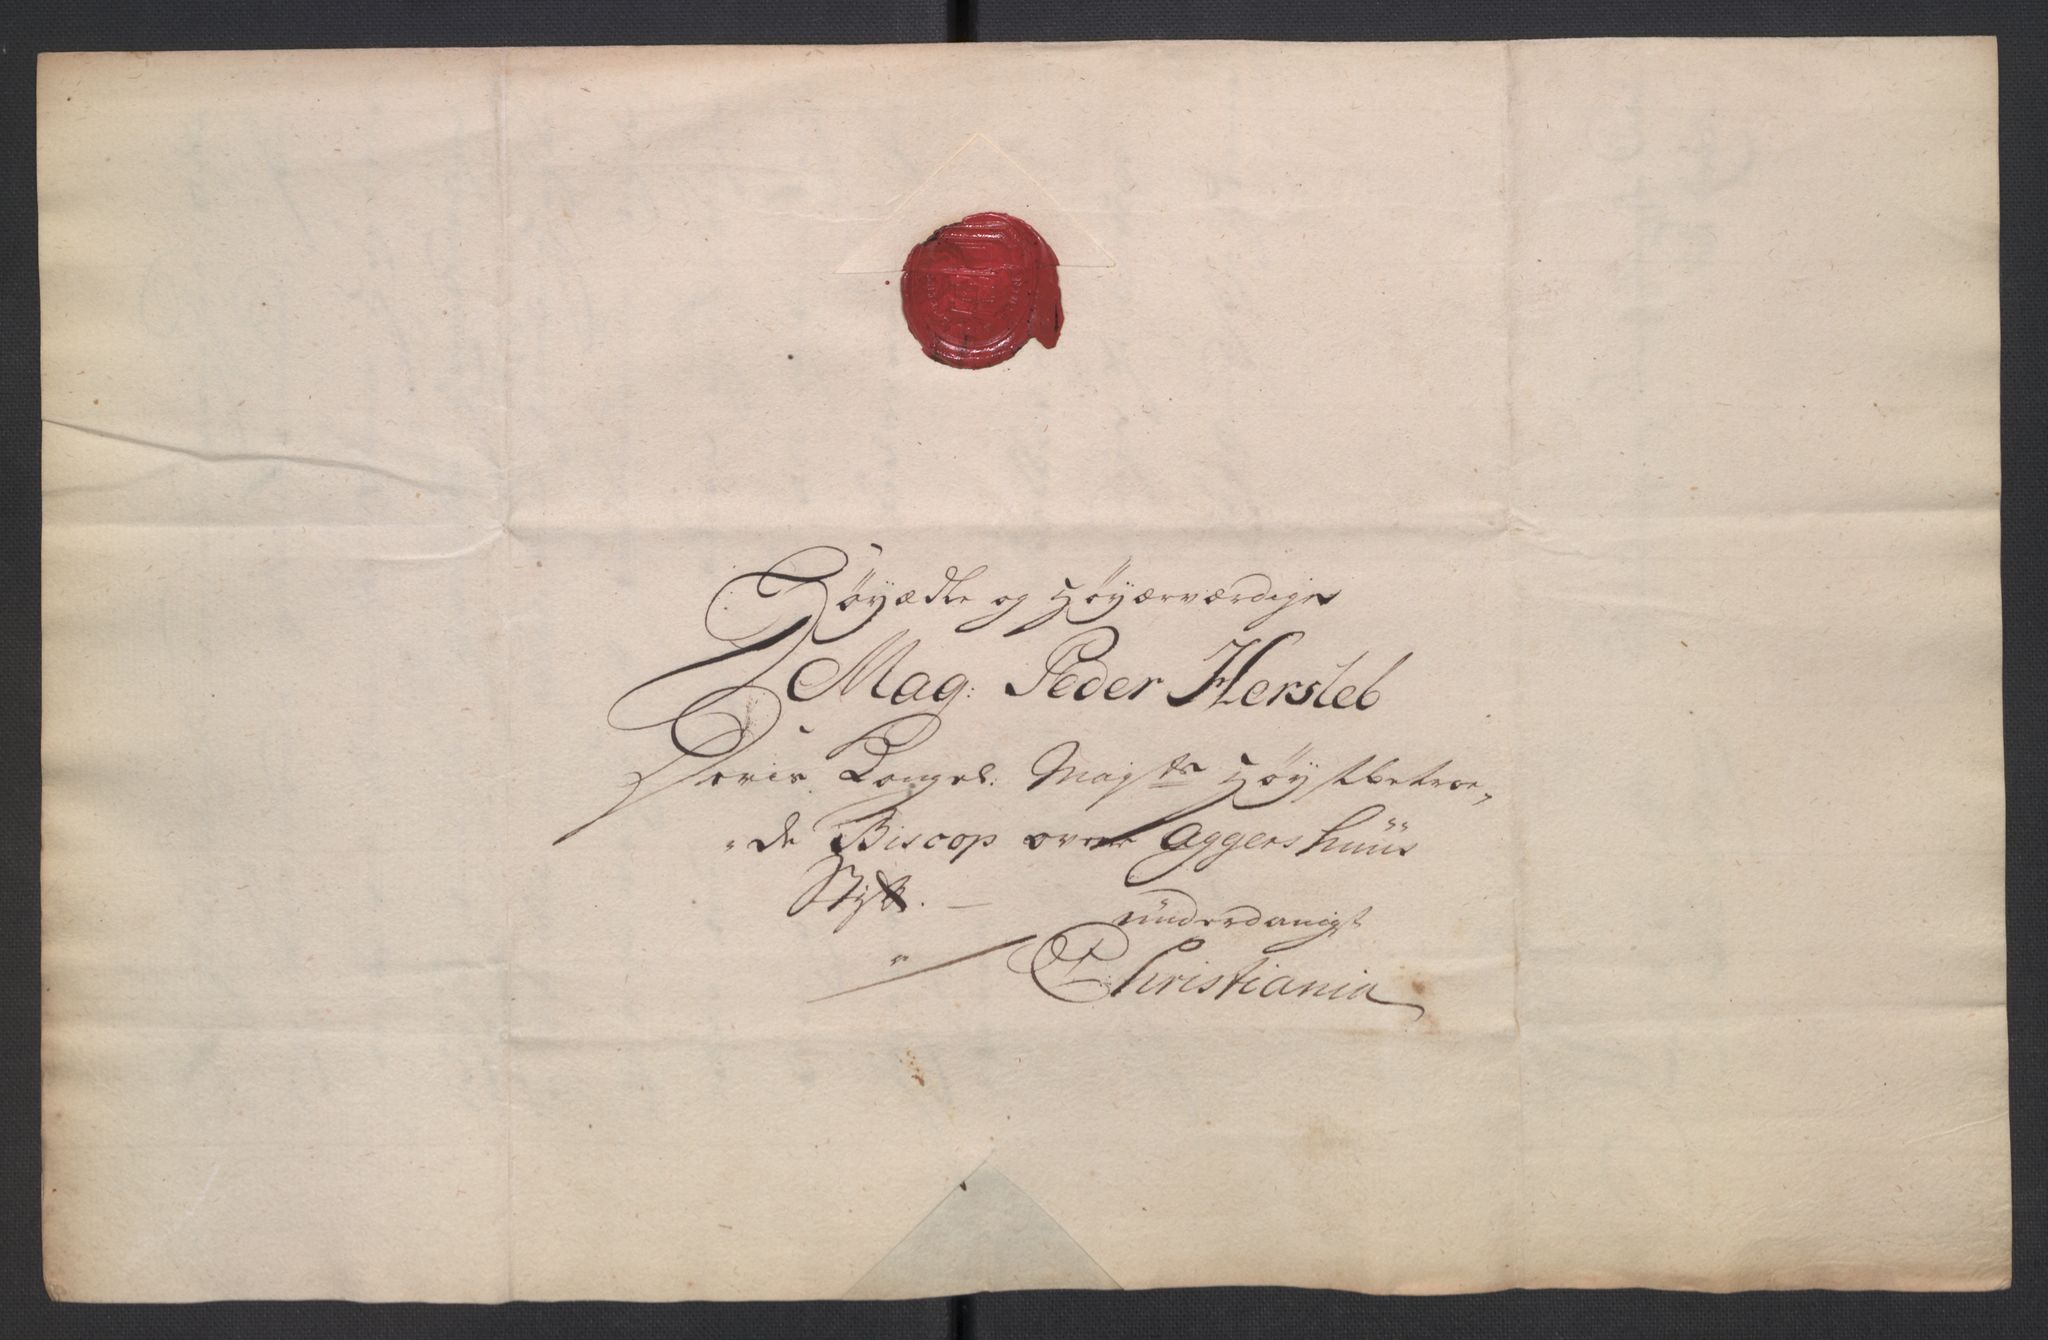 Høyædle og Høyærværdige
Mag: Peder Hersleb
Voris Kongel: Maÿsts Høystbetroe„
„de Biscop over Aggershuus
Stift. —
underdanigst
Christiania